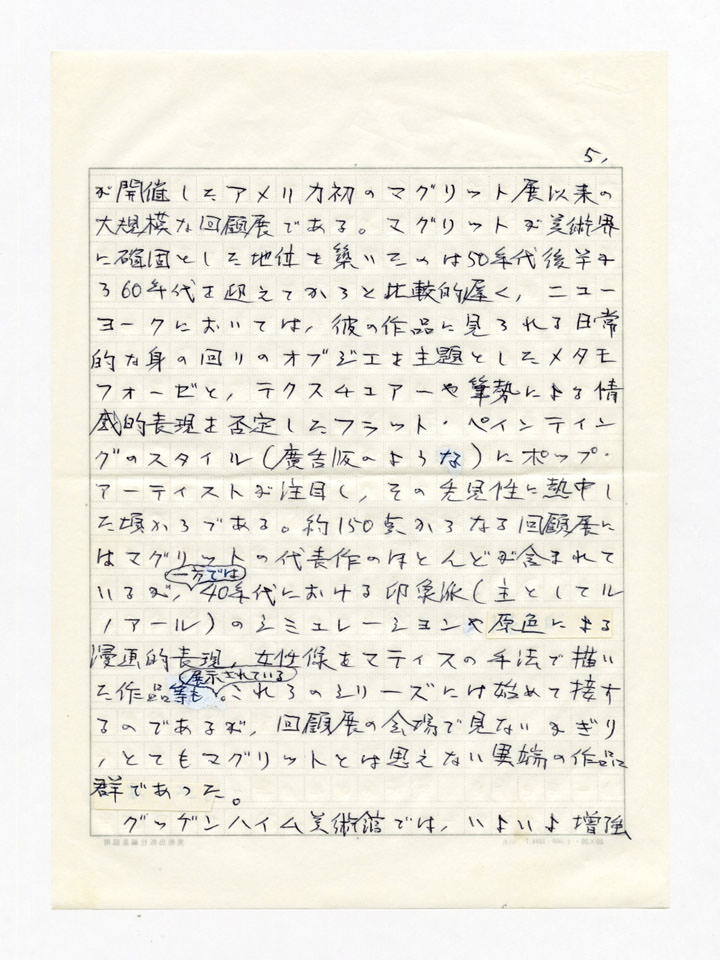 5.
が開催したアメリカ初のマグリット展以来の
大規模な回顧展である。マグリットが美術界
に確固とした地位を築いたのは50年代後半か
ら60年代を迎えてからと比較的遅く、ニュー
ヨークにおいては、彼の作品に見られる日常
的な身の回りのオブジエを主題としたメタモ
フォーゼと、テクスチュアーや筆勢による情
感的表現を否定したフラット・ペインティン
グのスタイル(廣告版のような)にポップ・
アーティストが注目し、その先見性に熱中し
た頃からである。約150点からなる回顧展に
はマグリットの代表作のほとんどが含まれて
一方では
いるが、40年代における印象派(主としてル
ノアール)のシミュレーションや原色による
漫画的表現、女性像をマティスの手法で描い
展示されている
た作品等も。これらのシリーズには始めて接す
るのであるが、回顧展の会場で見ないかぎり
、とてもマグリットとは思えない異端の作品
群であった。
グッゲンハイム美術館では、いよいよ増強